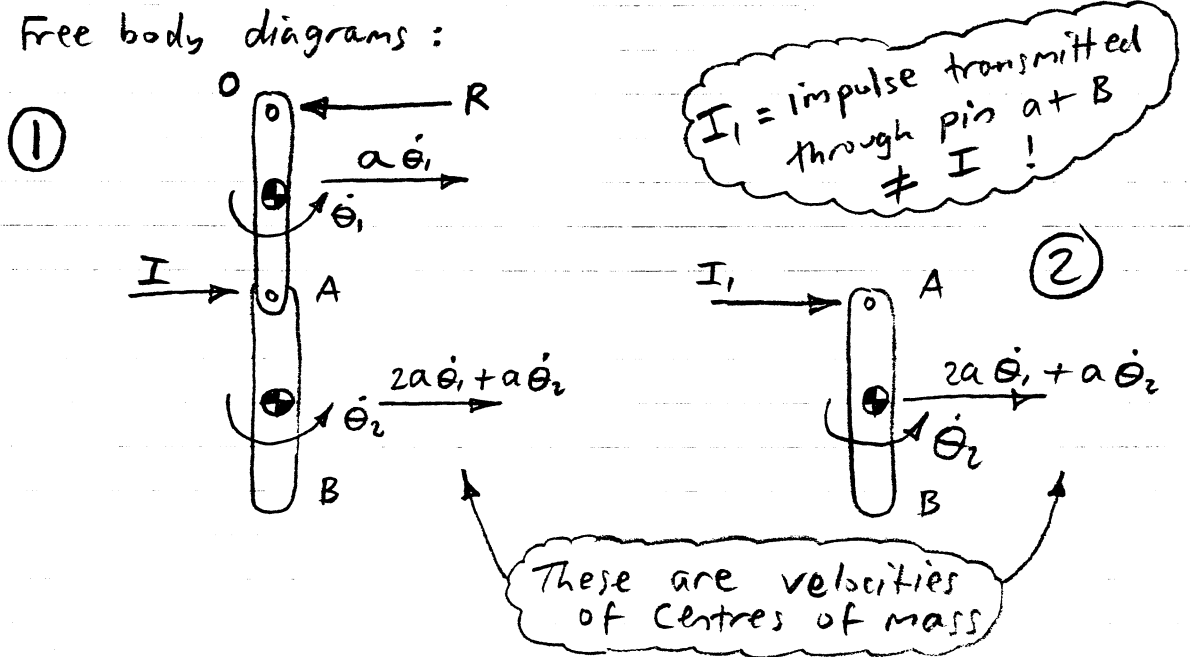 Free body diagrams :
①
O
R
aθ̇₁
θ̇₁
I
A
2aθ̇₁ + aθ̇₂
θ̇₂
B
I₁ = impulse transmitted
through pin at B
≠ I !
②
I₁
A
2aθ̇₁ + aθ̇₂
θ̇₂
B
These are velocities
of Centres of mass